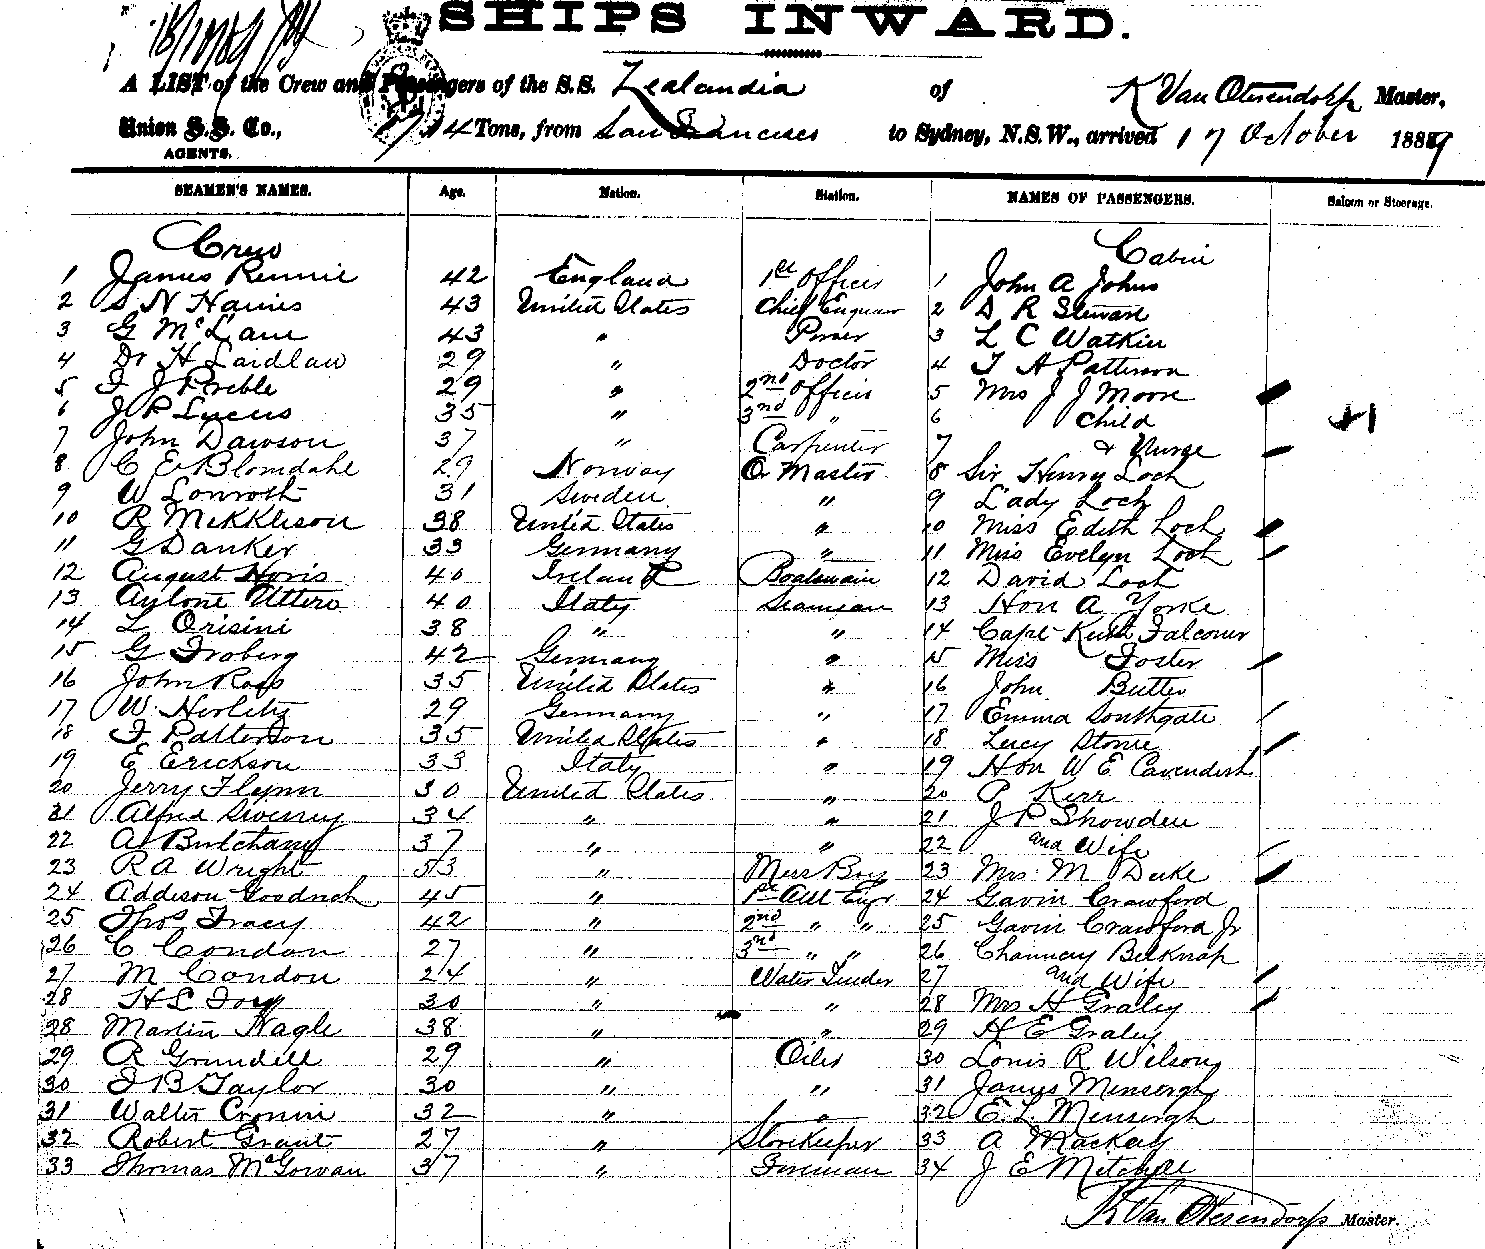 SHIPS INWARD.
A LIST of the Crew and Passengers of the S.S. Zealandia of K Van Oterendorp Master,
Union S.S. Co., 1714 Tons, from San Francisco to Sydney, N.S.W., arrived 17 October 1889
AGENTS.
SEAMEN'S NAMES. Age. Nation. Station. NAMES OF PASSENGERS. Saloon or Steerage.
Crew Cabin
1 James Rennie 42 England 1st Officer 1 John A Johns
2 S N Haines 43 United States Chief Engineer 2 D R Stewart
3 G McLane 43 " Purser 3 L C Watkin
4 Dr H Laidlaw 29 " Doctor 4 T A Patterson
5 F J Preble 29 " 2nd Officer 5 Mrs J J Moore
6 J P Lucus 35 " 3rd " 6 Child
7 John Dawson 37 " Carpenter 7 & Nurse
8 C E Blomdahl 29 Norway Q Master 8 Sir Henry Loch
9 W Lonroth 31 Sweden " 9 Lady Loch
10 R McKKlison 38 United States " 10 Miss Edith Loch
11 G Danker 33 Germany " 11 Miss Evelyn Loch
12 August Horis 40 Ireland Boatswain 12 David Loch
13 40 Italy Seaman 13 Hon A Yorke
14 L Orisini 38 " " 14 Capt Keith Falconer
15 G Froberg 42 Germany " 15 Miss Foster
16 John Ross 35 United States " 16 John Butler
17 W. Herlitz 29 Germany " 17 Emma Southgate
18 F Patterson 35 United States " 18 Lucy Stone
19 E Erickson 33 Italy " 19 Hon W E Cavendish
20 Jerry Flynn 30 United States " 20 P Kerr
21 Alfred 34 " " 21 J P Showden
22 A 37 " " 22 and Wife
23 R A Wright 53 " Mess Boy 23 Mrs M Duke
24 Addison Goodrich 45 " 1st Asst Engr 24 Gavin Crawford
25 Thos Tracy 42 " 2nd " " 25 Gavin Crawford Jr
26 C Condon 27 " 3rd " " 26 Chauncey Belknap
27 M Condon 24 " Water Tender 27 and Wife
28 H L Foy 30 " " 28 Mrs H Graley
28 Martin Nagle 38 " " 29 H E Graley
29 R Grundell 29 " Oiler 30 Louis R Wilson
30 F B Taylor 30 " " 31 James Mensergh
31 Walter Cronin 32 " " 32 E. L. Mensergh
32 Robert Grant 27 " Storekeeper 33 A Mackay
33 Thomas McGowan 37 " Fireman 34 J E Mitchel
K Van Oterendorp Master.